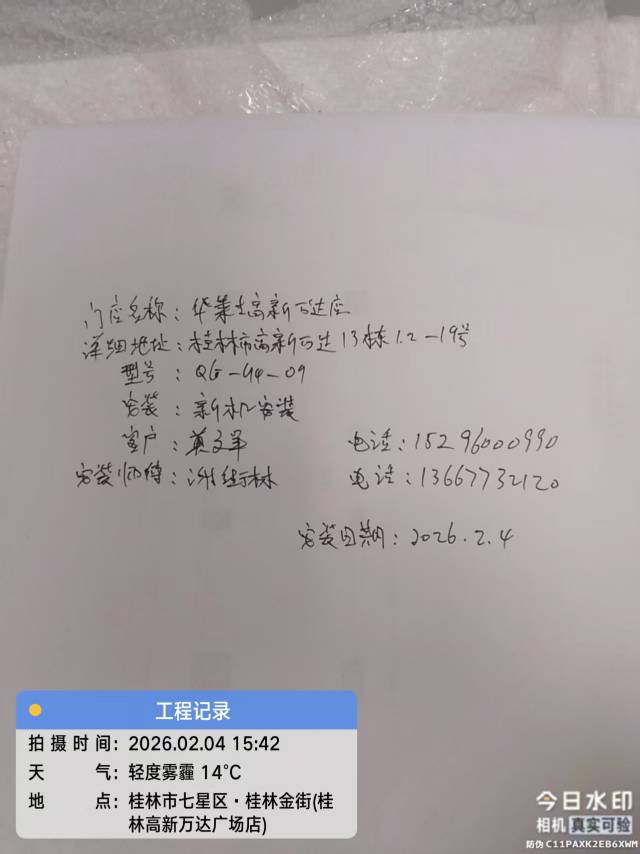 门店名称：华莱士高新万达店
详细地址：桂林市高新万达13栋1.2-19号
型号：QG-U4-09
安装：新机安装
客户：莫文军 电话：15296000990
安装师傅：谢衍林 电话：13667732120
安装日期：2026.2.4
工程记录
拍摄时间：2026.02.04 15:42
天 气：轻度雾霾 14℃
地 点：桂林市七星区·桂林金街(桂
林高新万达广场店)
今日水印
相机 真实可验
防伪 C11PAXK2EB6XWM